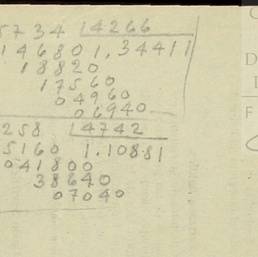 5734 4266
14680 1,34411
18820
17560
04960
06940
258 4742
5160 1.10881
041800
38640
07040
D
F